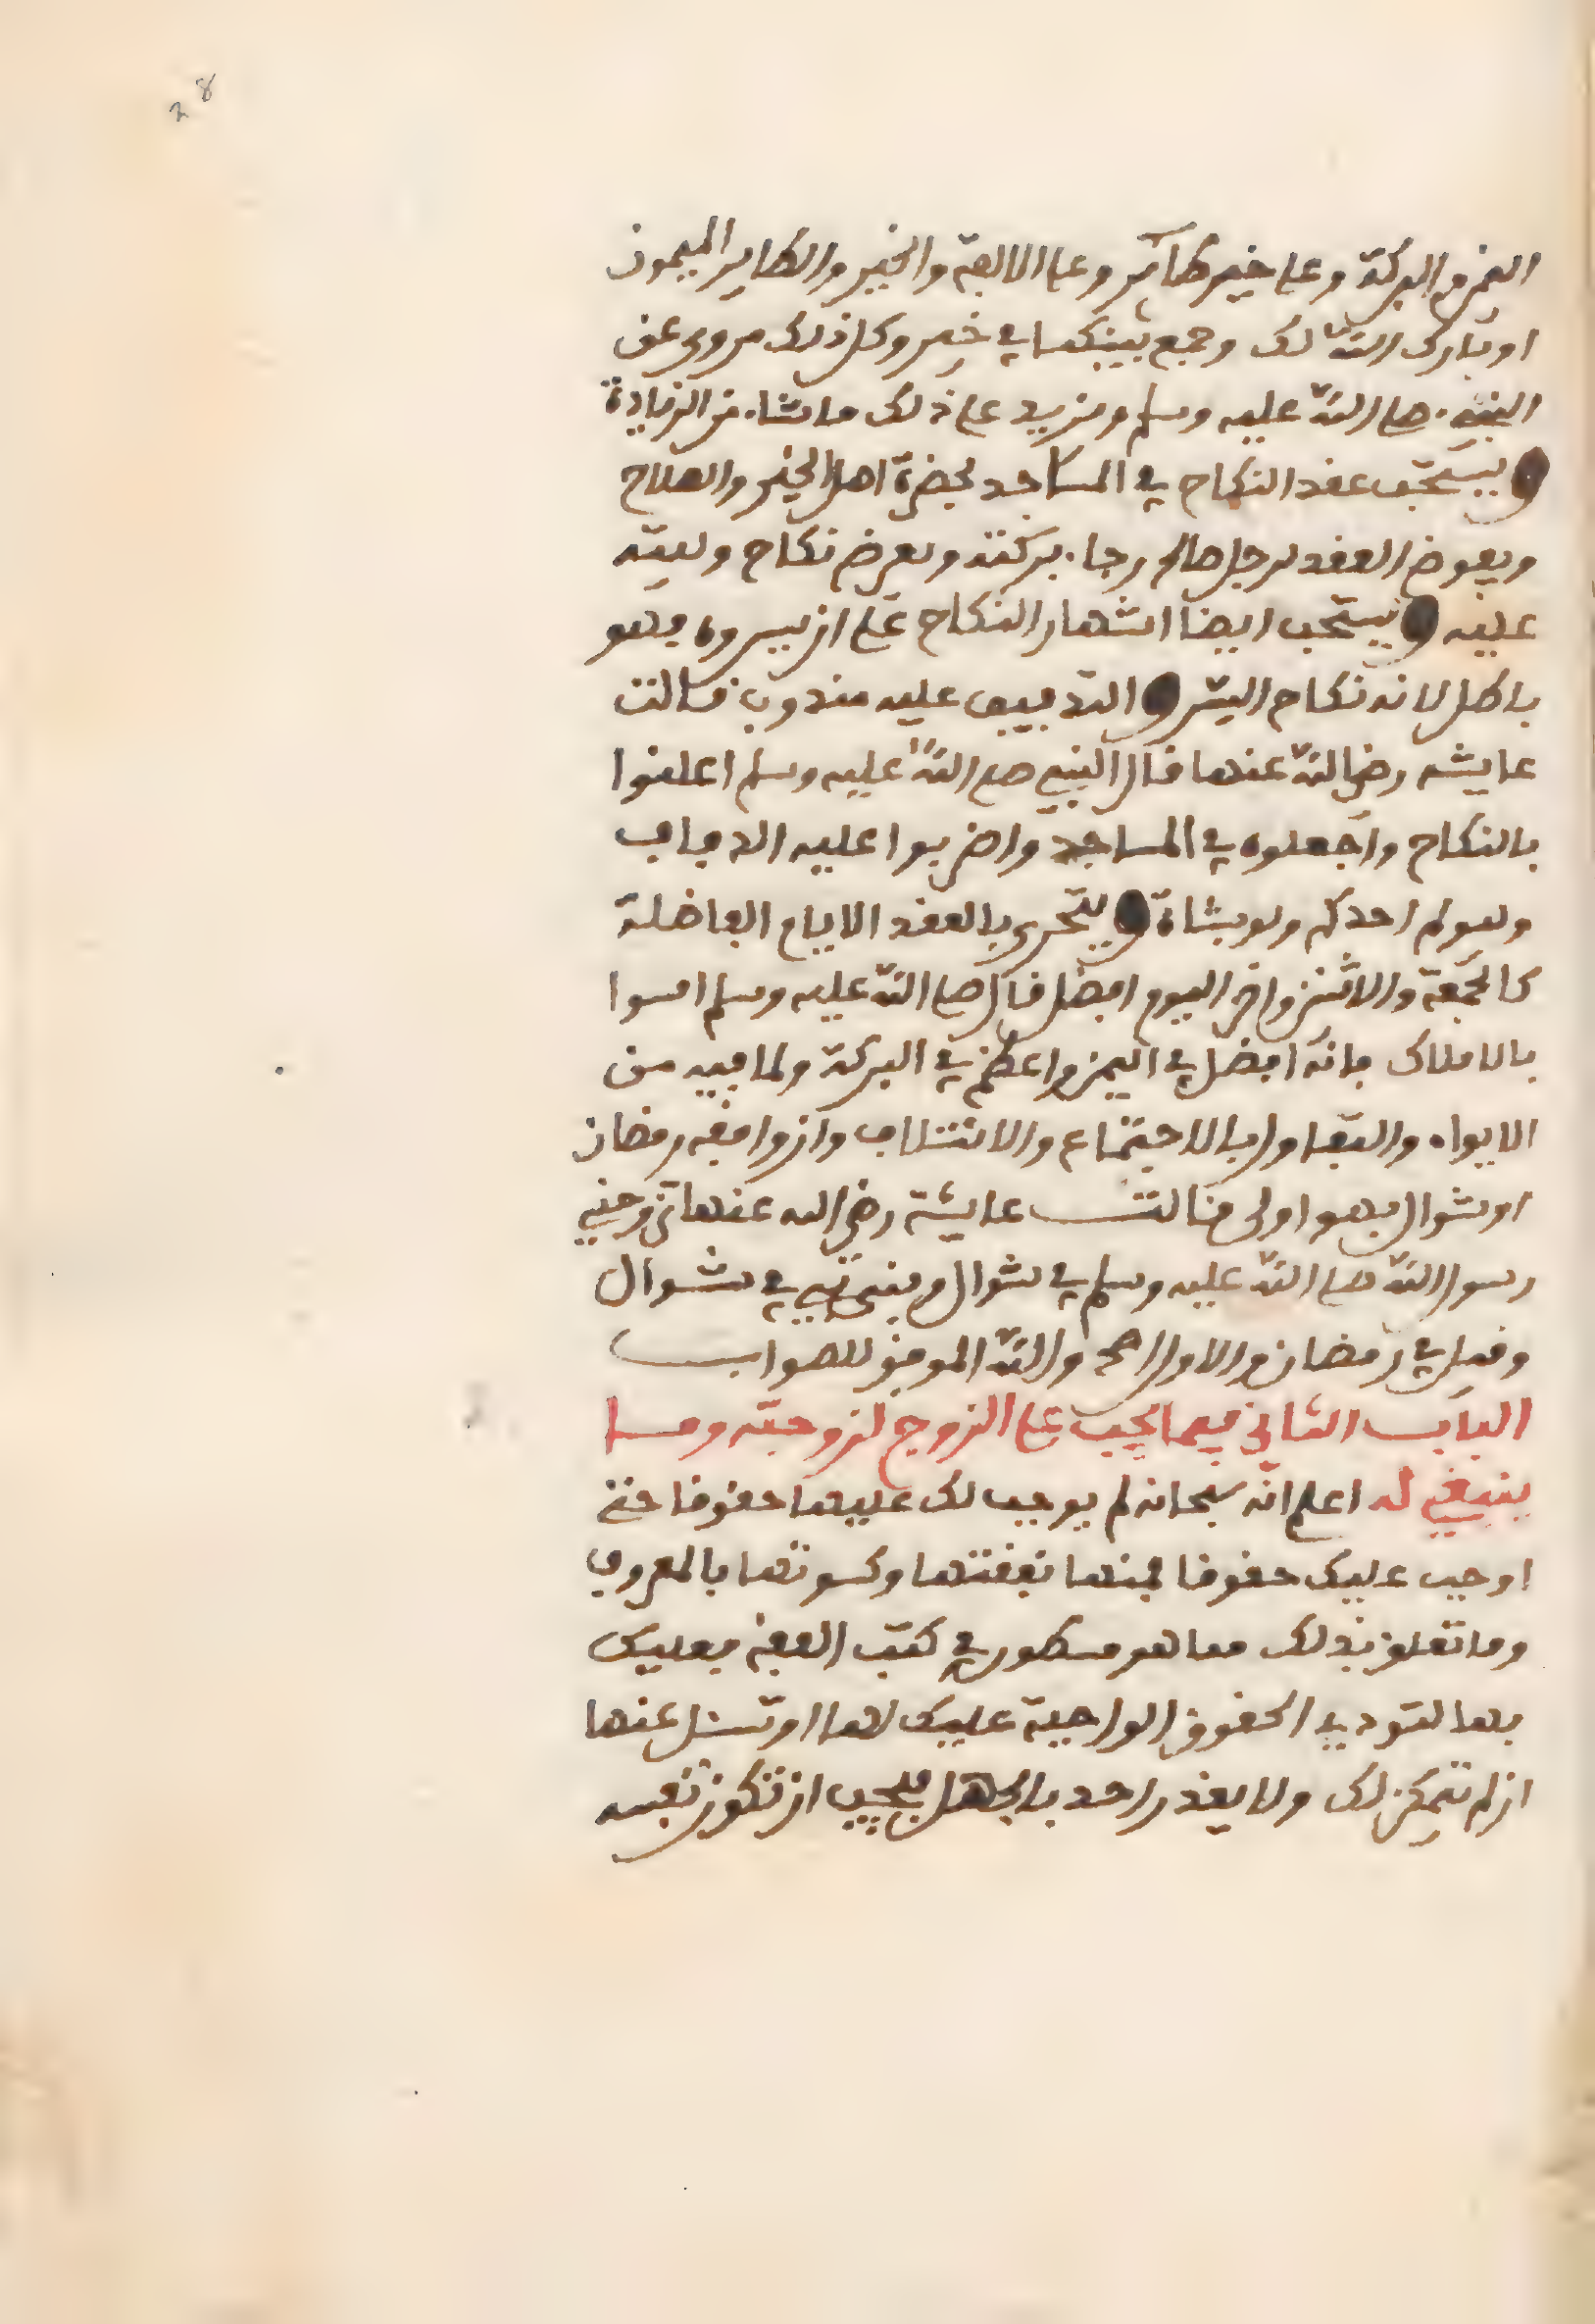 28
اليمن والبركة وعلى خير طائر وعلى الالفة والخير والطاير الميمون
او بارك الله لك وجمع بينكما في خير وكل ذلك مروي عن
النبي صلى الله عليه وسلم ويزيد على ذلك ما شاء من الزيادة
ويستحب عقد النكاح في المساجد بحضرة اهل الخير والصلاح
ويفوض العقد لرجل صالح رجاء بركته ويعرض نكاح وليته
عليه ويستحب ايضا اشهار النكاح على ان يسروه فهو
باطل لانه نكاح السر والتدفيف عليه مندوب قالت
عايشة رضي الله عنها قال النبي صلى الله عليه وسلم اعلنوا
بالنكاح واجعلوه في المساجد واضربوا عليه الدفاف
وليولم احدكم ولو بشاة ويتحرى بالعقد الايام الفاضلة
كالجمعة والاثنين واخر اليوم افضل قال صلى الله عليه وسلم امسوا
بالاملاك فانه افضل في اليمن واعظم في البركة ولما فيه من
الايواء والتفاول بالاجتماع والائتلاف وان وافقه رمضان
او شوال فهو اولى قالت عايشة رضي الله عنها تزوجني
رسول الله صلى الله عليه وسلم في شوال وبنى بي في شوال
وقيل في رمضان والاول اصح والله الموفق للصواب
الباب الثاني فيما يجب على الزوج لزوجته وما
ينبغي له اعلم انه سبحانه لم يوجب لك عليها حقوقا حتى
اوجب عليك حقوقا فمنها نفقتها وكسوتها بالمعروف
وما تعلق بذلك مما هو مسطور في كتب الفقه فعليك
بها لتودي الحقوق الواجبة عليك لها او تسئل عنها
ان لم تتمكن لك ولا يعذر احد بالجهل فيجب ان تكون نفسه